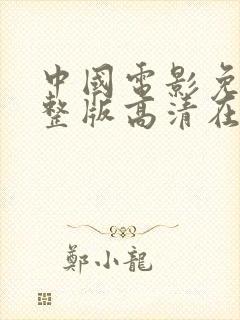 中國電影免
整版高清在
鄭小龍